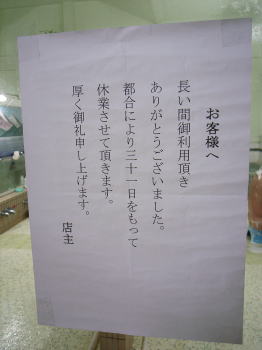 お客様へ
長い間御利用頂き
ありがとうございました。
都合により三十一日をもって
休業させて頂きます。
厚く御礼申し上げます。
店主